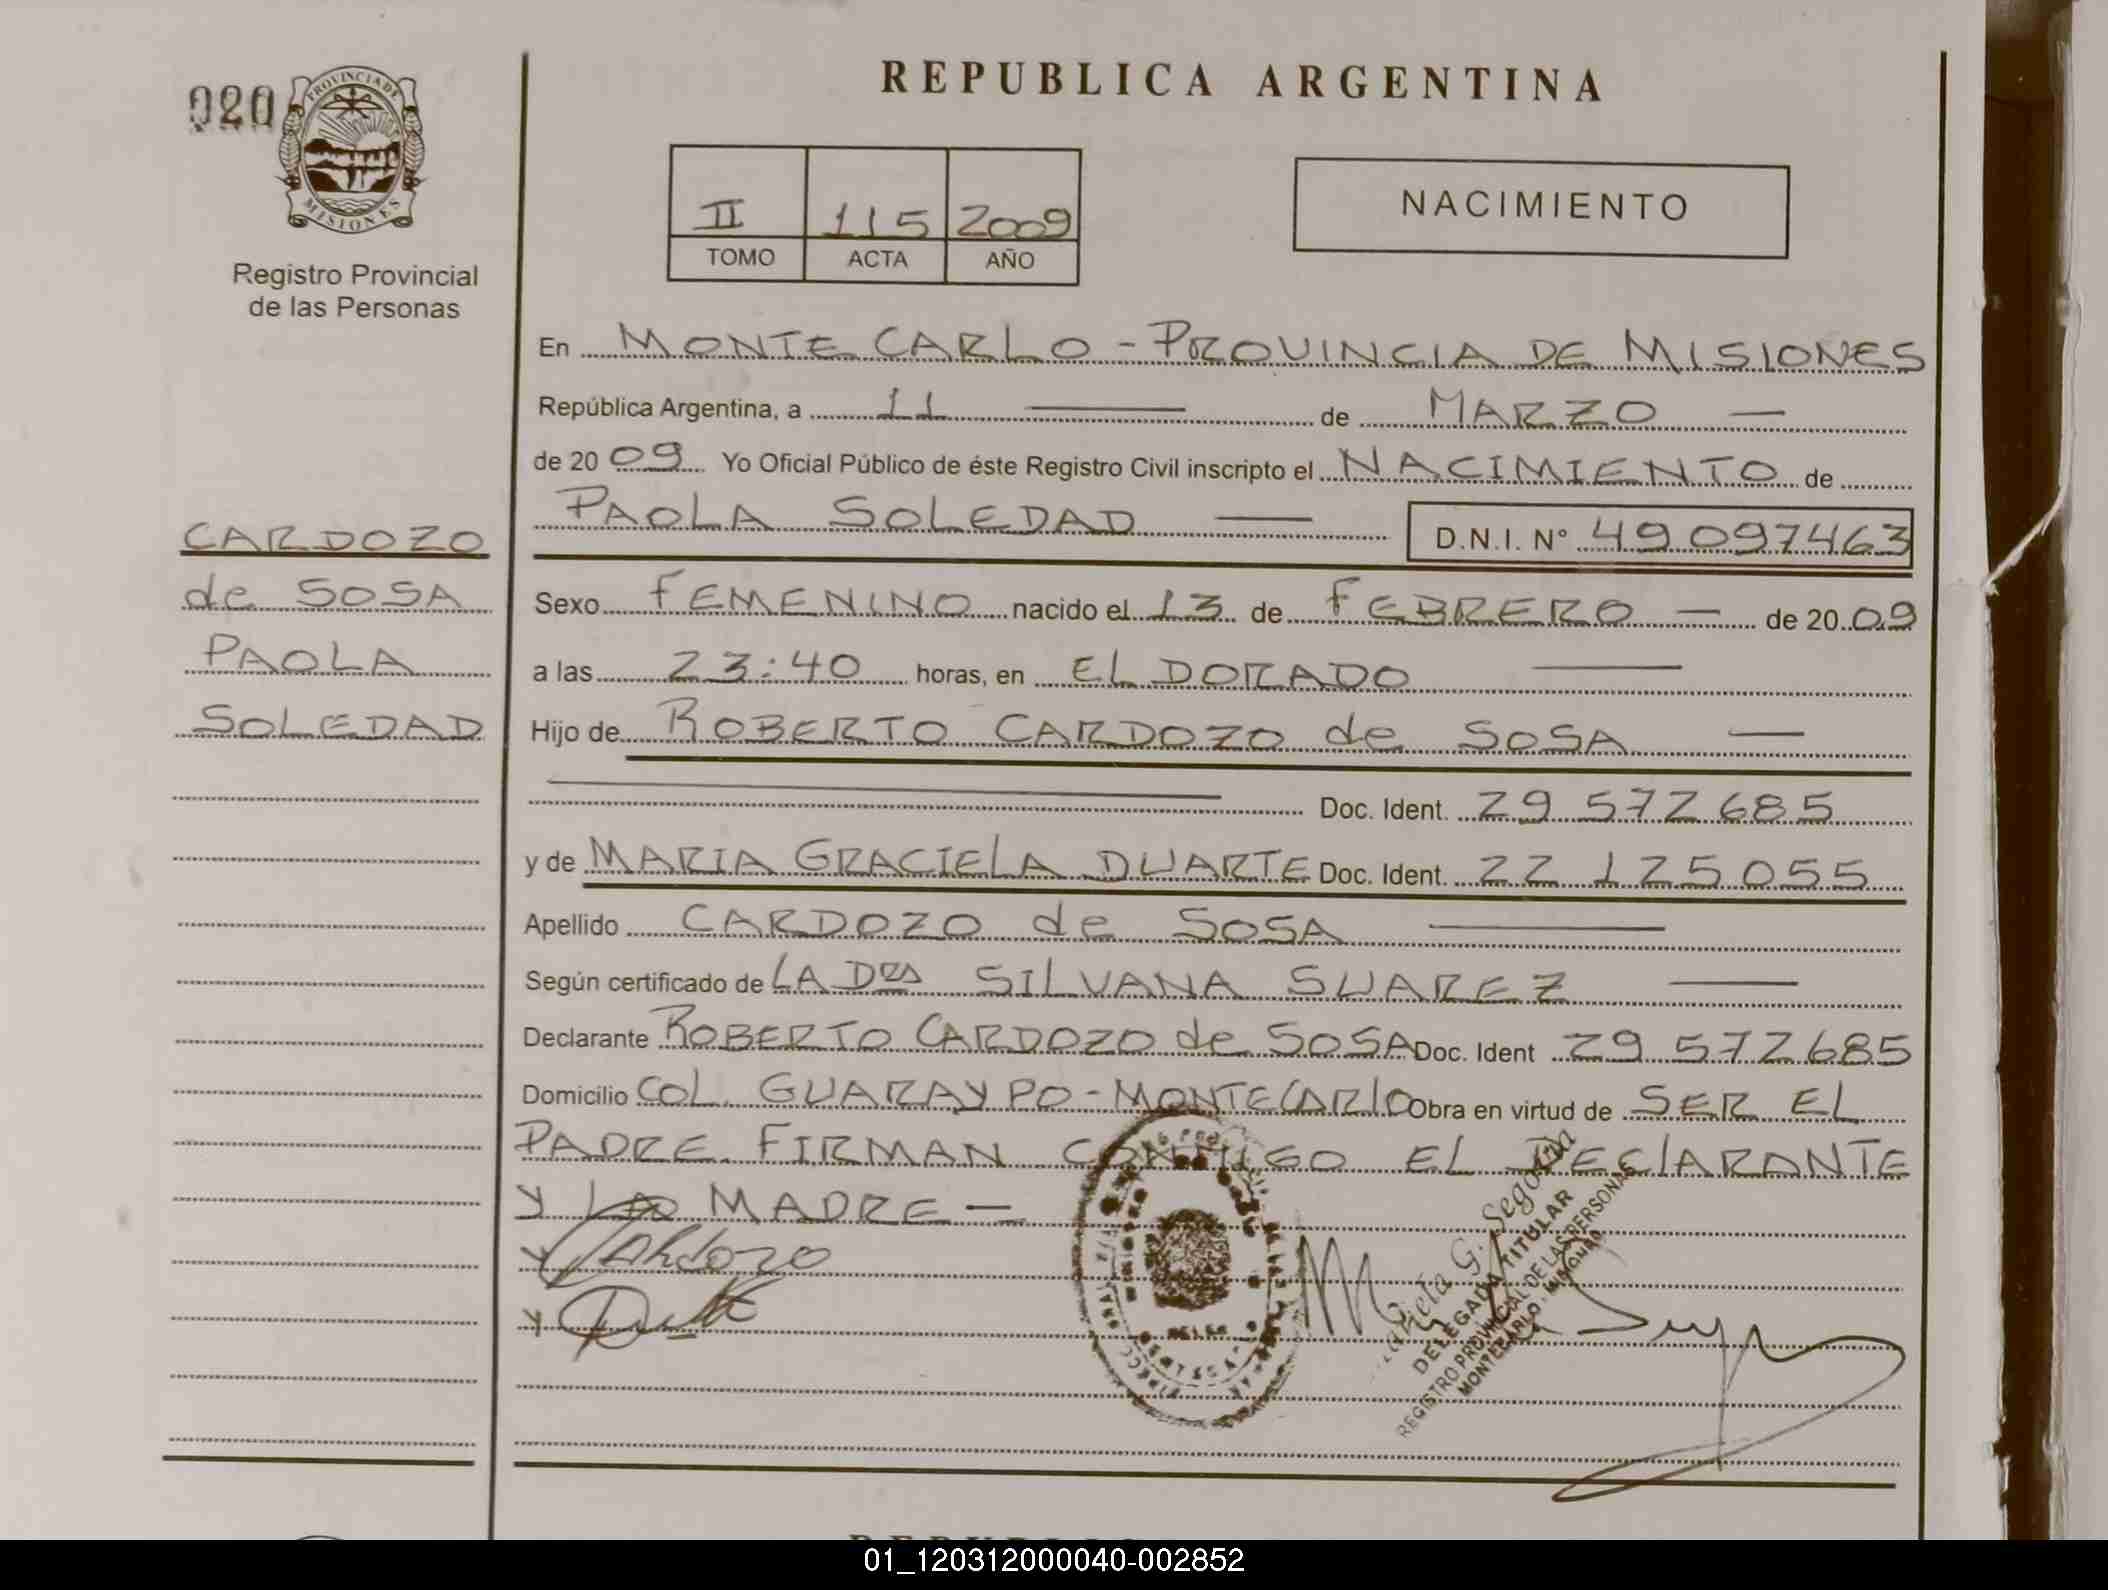 020
PROVINCIA DE
MISIONES
Registro Provincial
de las Personas
REPUBLICA ARGENTINA
II 115 2009
TOMO ACTA AÑO
NACIMIENTO
En MONTE CARLO - PROVINCIA DE MISIONES
República Argentina, a 11 — de MARZO —
de 20 09 Yo Oficial Público de éste Registro Civil inscripto el NACIMIENTO de
PAOLA SOLEDAD — D.N.I. N° 49 097463
CARDOZO
de SOSA
PAOLA
SOLEDAD
Sexo FEMENINO nacido el 13 de FEBRERO — de 20 09
a las 23:40 horas, en ELDORADO —
Hijo de ROBERTO CARDOZO de SOSA —
Doc. Ident. 29 572 685
y de MARIA GRACIELA DUARTE Doc. Ident. 22 125 055
Apellido CARDOZO de SOSA —
Según certificado de LA DRA SILVANA SUAREZ —
Declarante ROBERTO CARDOZO de SOSA Doc. Ident 29 572 685
Domicilio COL. GUARAYPO - MONTECARLO Obra en virtud de SER EL
PADRE. FIRMAN CONMIGO EL DEClARANTE
Y LA MADRE —
Cardozo
G. Segovia
DELEGADA TITULAR
REGISTRO PROVINCIAL DE LAS PERSONAS
MONTECARLO - MISIONES
01_120312000040-002852